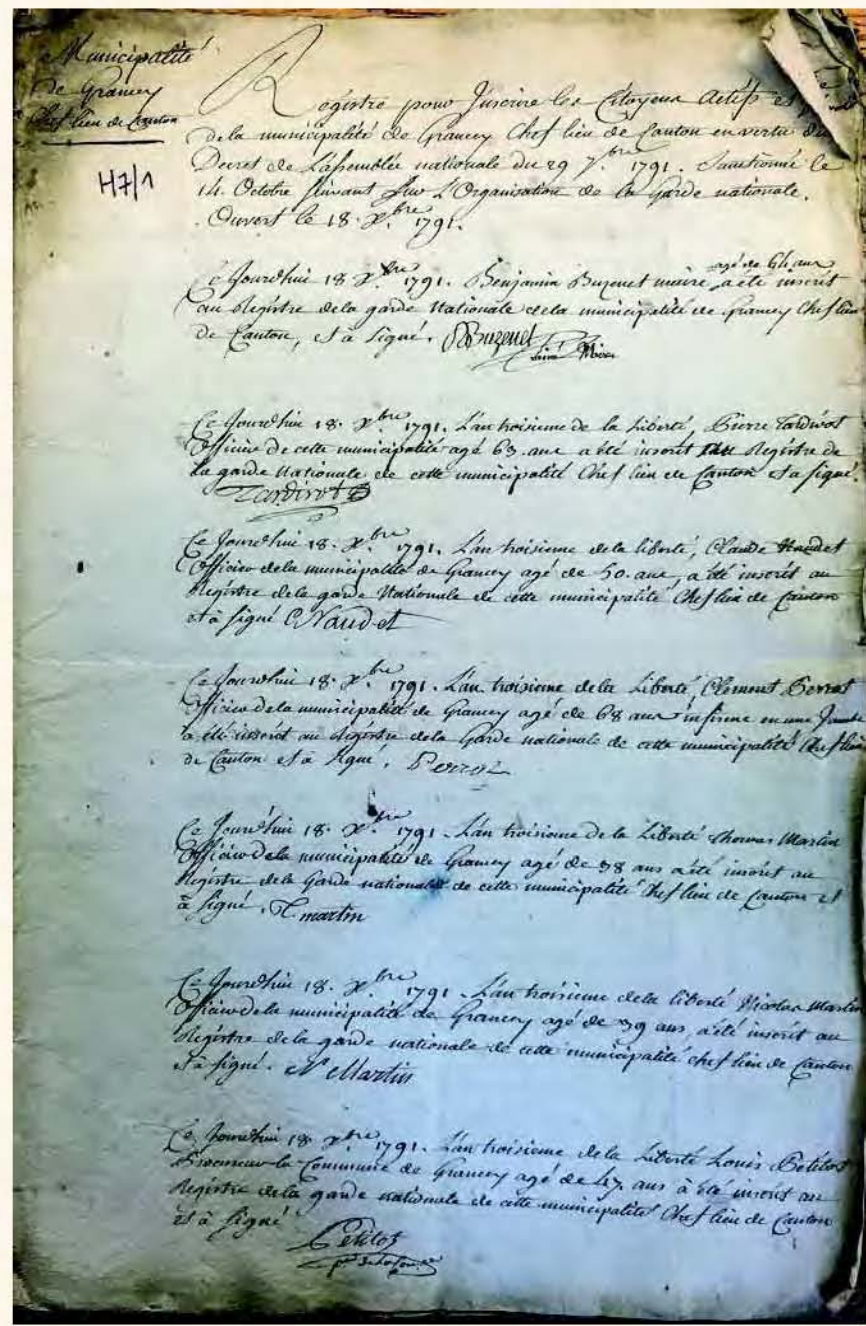 Municipalité
de Grancey
Chef lieu de Canton
H7/1
Registre pour Inscrire les Citoyens actifs et
de la municipalité de Grancey Chef lieu de Canton en vertu du
Decret de L'assemblée nationale du 29 7.bre 1791. Sanctionné le
14. Octobre suivant sur L'Organisation de la garde nationale.
Ouvert le 18. X.bre 1791.
Ce Jourd'hui 18 X.bre 1791. Benjamin Buzenet maire agé de 64 ans a été inscrit
au Registre de la garde Nationale de la municipalité de Grancey Chef lieu
de Canton, et a signé. Buzenet
Ce Jourd'hui 18. X.bre 1791. L'an troisieme de la Liberté, Pierre Tardivot
Officier de cette municipalité agé 63. ans a été inscrit au Registre de
la garde Nationale de cette municipalité Chef lieu de Canton et a signé.
Tardivot
Ce Jourd'hui 18. X.bre 1791. L'an troisieme de la liberté, Claude Naudet
Officier de la municipalité de Grancey agé de 50. ans, a été inscrit au
Registre de la garde Nationale de cette municipalité Chef lieu de Canton
et à signé C Naudet
Ce Jourd'hui 18. X.bre 1791. L'an troisieme de la Liberté, Clement Perrot
Officier de la municipalité de Grancey agé de 68 ans infirme en une Jambe
a été inscrit au Registre de la Garde nationale de cette municipalité Chef lieu
de Canton et a signé. Perrot
Ce Jourd'hui 18. X.bre 1791. L'an troisieme de la Liberté thomas Martin
Officier de la municipalité de Grancey agé de 38 ans a été inscrit au
Registre de la Garde nationale de cette municipalité Chef lieu de Canton et
à signé. T. martin
Ce Jourd'hui 18. X.bre 1791. L'an troisieme de la liberté Nicolas Martin
Officier de la municipalité de Grancey agé de 39 ans, a été inscrit au
Registre de la garde nationale de cette municipalité chef lieu de Canton
et à signé. N Martin
Ce Jourd'hui 18. X.bre 1791. L'an troisieme de la Liberté Louis Petitot
Procureur la Commune de Grancey agé de 47. ans à été inscrit au
Registre de la garde nationale de cette municipalité Chef lieu de Canton
et à signé
Petitot